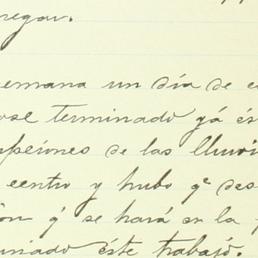 regar.
semana un día de
ose terminado yá és
peiones de las lluvi
centro y hubo qe des
ón q' se hará en la
niado éste trabajó.